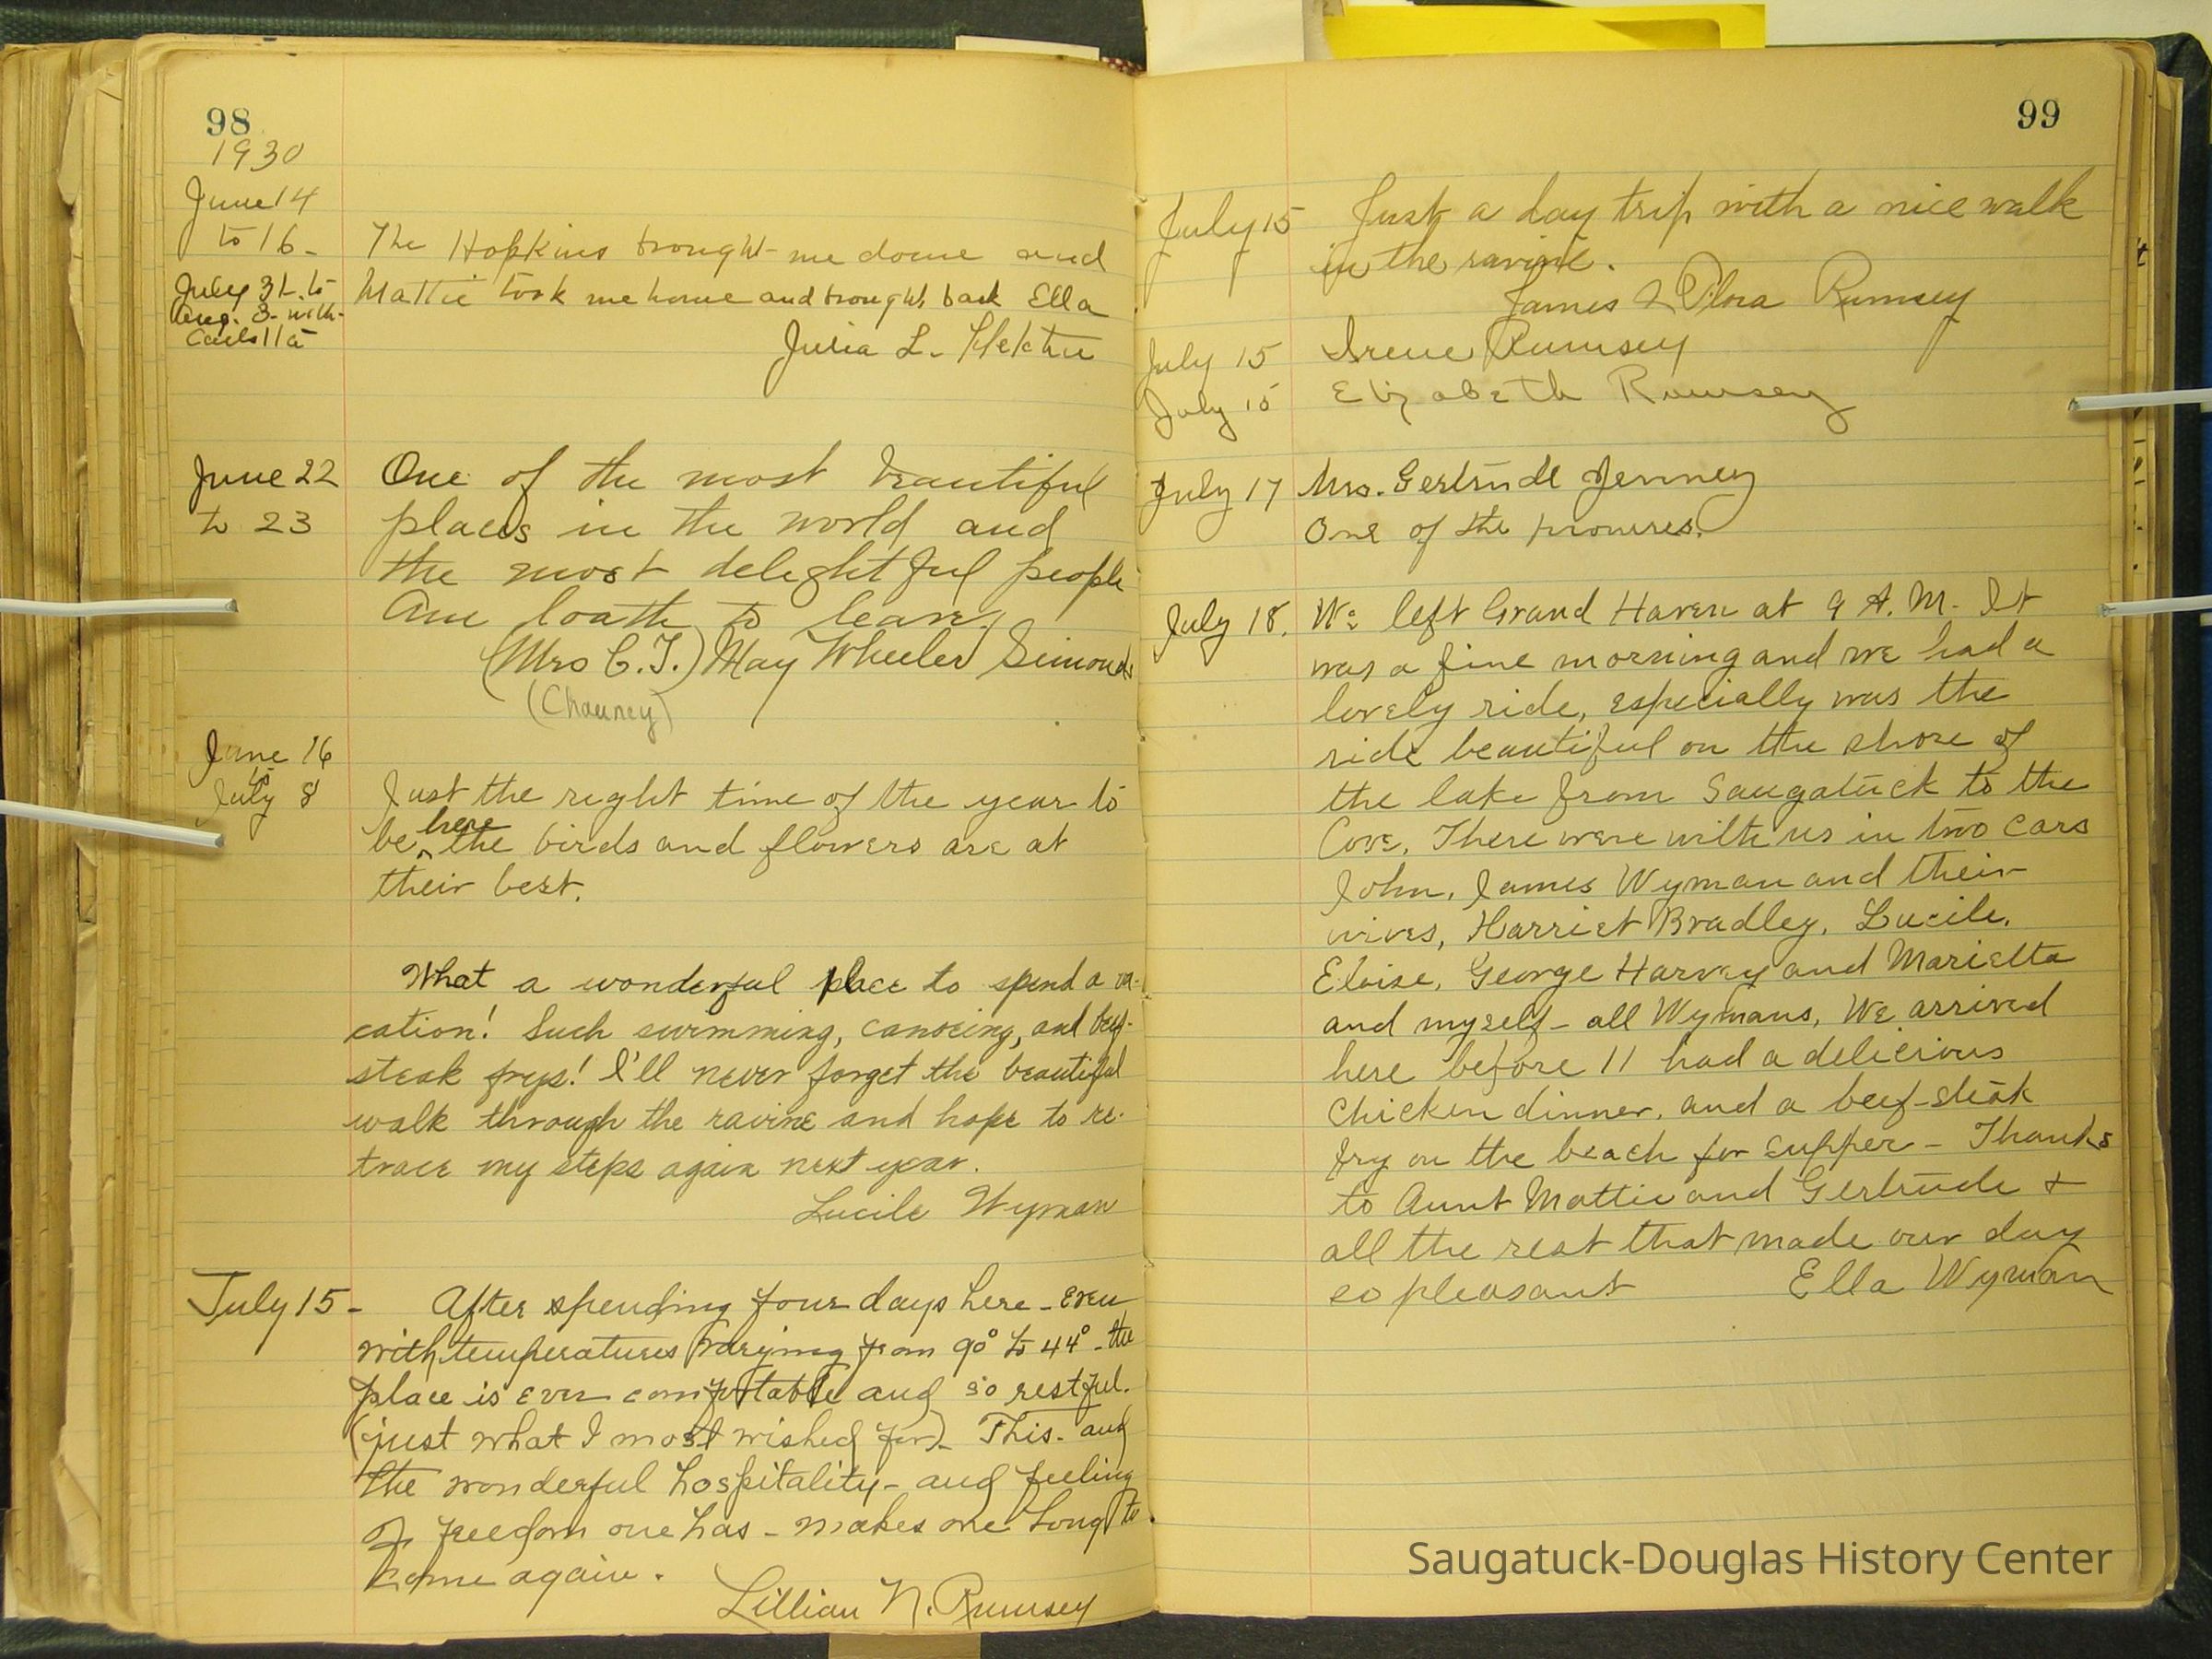 98
1930
June 14
to 16 -
The Hopkins brought me down and
July 31 to
Mattie took me home and brought back Ella
Aug. 3 - with
Julia L.
June 22
One of the most beautiful
to 23
places in the world and
the most delightful people
Am loath to leave.
(Mrs C. T.) May Wheeler Simonds
(Chauncy)
June 16
to
July 8
Just the right time of the year to
be here the birds and flowers are at
their best.
What a wonderful place to spend a va-
cation! Such swimming, canoeing, and beef-
steak frys! I'll never forget the beautiful
walk through the ravine and hope to re-
trace my steps again next year.
Lucile Wyman
July 15 -
After spending four days here - even
with temperatures varying from 90° to 44° - the
place is ever comfortable and so restful.
(just what I most wished for). This - and
the wonderful hospitality - and feeling
of freedom one has - makes one long to
come again.
Lillian N. Rumsey
99
July 15
Just a day trip with a nice walk
in the ravine.
James & Flora Rumsey
July 15
Irene Rumsey
July 15
Elizabeth Rumsey
July 17
Mrs. Gertrude Jenney
One of the
July 18.
We left Grand Haven at 9 A.M. It
was a fine morning and we had a
lovely ride, especially was the
ride beautiful on the shore of
the lake from Saugatuck to the
Cove. There were with us in two cars
John, James Wyman and their
wives, Harriet Bradley, Lucile,
Eloise, George Harvey and Marietta
and myself - all Wymans, We arrived
here before 11 had a delicious
chicken dinner, and a beef-steak
fry on the beach for supper - Thanks
to Aunt Mattie and Gertrude +
all the rest that made our day
so pleasant
Ella Wyman
Saugatuck-Douglas History Center